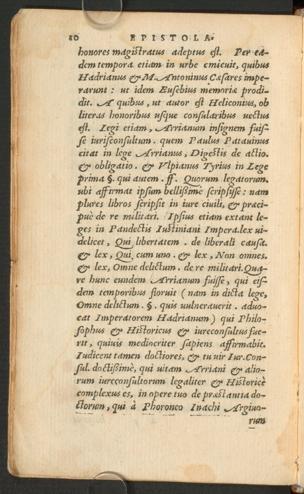 80 EPISTOLA.
honores magistratus adeptus est. Per ea-
dem tempora etiam in urbe emicuit, quibus
Hadrianus & M. Antoninus Cæsares impe-
rarunt: ut idem Eusebius memoriæ prodi-
dit. A quibus, ut autor est Heliconius, ob
literas honoribus usque consularibus uectus
est. Legi etiam, Arrianum insignem fuis-
se iurisconsultum. quem Paulus Patauinus
citat in lege Arrianus, Digestis de actio.
& obligatio. & Vlpianus Tyrius in Lege
prima §. qui autem. ff. Quorum legatorum,
ubi affirmat ipsum bellissime scripsisse: nam
plures libros scripsit in iure ciuili, & præci-
puè de re militari. Ipsius etiam extant le-
ges in Pandectis Iustiniani Impera. lex ui-
delicet, Qui libertatem. de liberali causa.
& lex, Qui cum uno. & lex, Non omnes.
& lex, Omne delictum. de re militari. Qua-
re hunc eundem Arrianum fuisse, qui eis-
dem temporibus floruit (nam in dicta lege,
Omne delictum. §. quis uulnerauerit. aduo-
cat Imperatorem Hadrianum) qui Philo-
sophus & Historicus & iureconsultus fue-
rit, quiuis mediocriter sapiens affirmabit.
Iudicent tamen doctiores, & tu uir Iur. Con-
sul. doctissimè, qui uitam Arriani & alio-
rum iureconsultorum legaliter & Historicè
complexus es, in opere tuo de præstantia do-
ctorum, qui à Phoroneo Inachi Argiuo-
rum